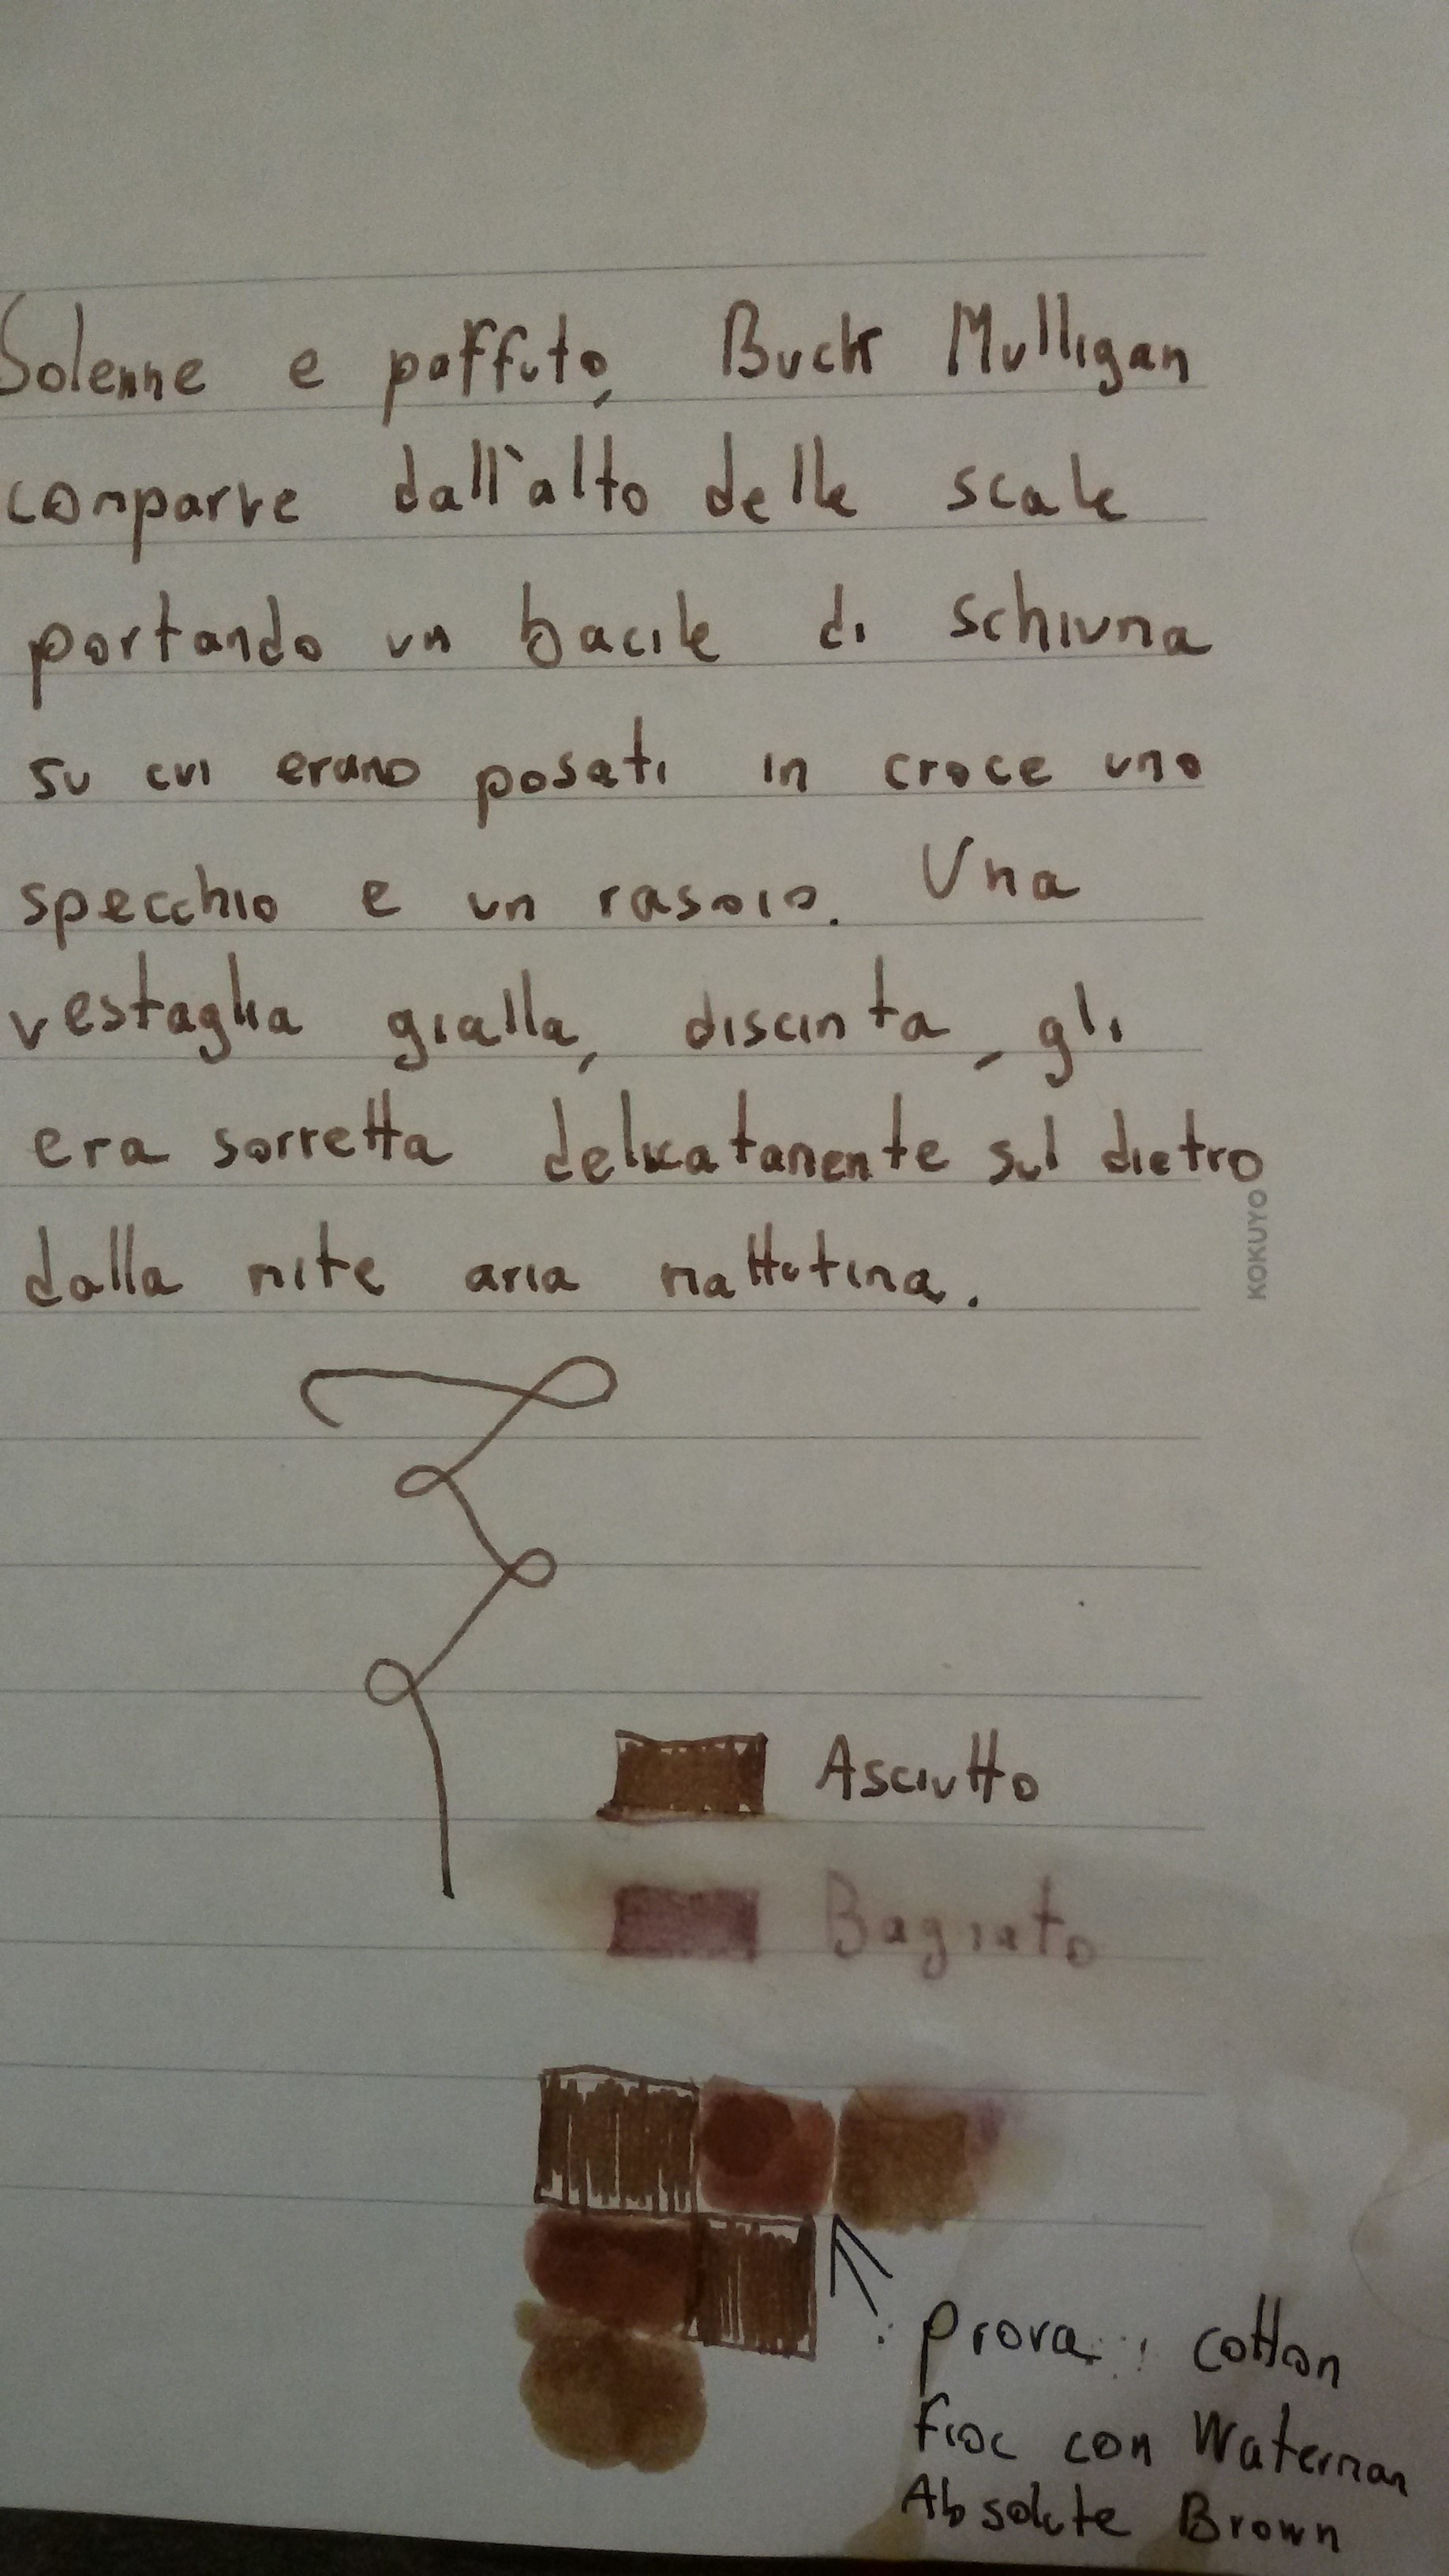 Solenne e paffuto, Buck Mulligan
comparve dall'alto delle scale
portando un bacile di schiuma
su cui erano posati in croce uno
specchio e un rasoio. Una
vestaglia gialla, discinta, gli
era sorretta delicatamente sul dietro
dalla mite aria mattutina.
KOKUYO
Asciutto
Bagnato
Prova: cotton
fioc con Waterman
Absolute Brown